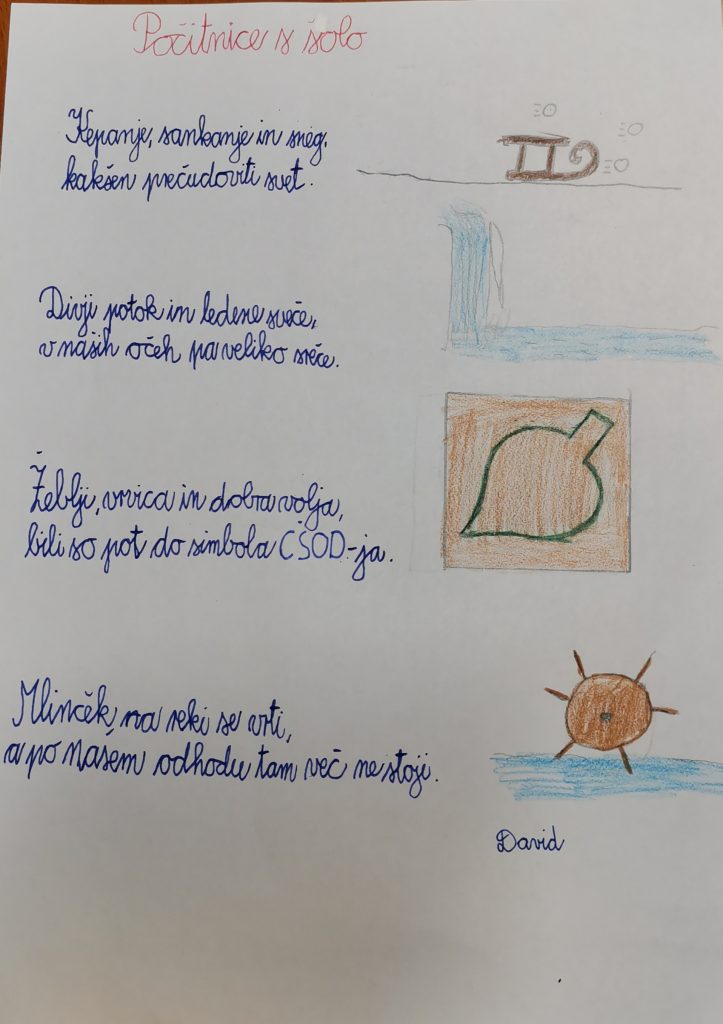 Počitnice s šolo
Kepanje, sankanje in sneg,
kakšen prečudoviti svet.
Divji potok in ledene sveče,
v naših očeh pa veliko sreče.
Žeblji, vrvica in dobra volja,
bili so pot do simbola CŠOD-ja.
Mlinček na reki se vrti,
a po našem odhodu tam več ne stoji.
David